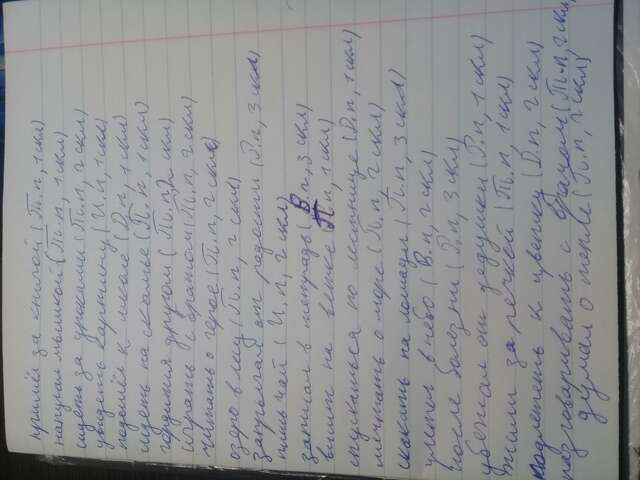 пришёл за книгой (Т.п, 1 скл)
напугал мышкой (Т.п, 1 скл)
идеть за уроками (Т.п, 2 скл)
увидеть картину (И.п, 1 скл)
подошёл к школе (Д.п, 1 скл)
сидеть на скамье (П.п, 1 скл)
гордимся другом (Т.п, 2 скл)
играть с братом (Т.п, 2 скл)
читать о герое (П.п, 2 скл)
озеро в лесу (П.п, 2 скл)
запрыгал от радости (Р.п, 3 скл)
(И.п, 2 скл)
записал в тетрадь (В.п, 3 скл)
висит на ветке (П.п, 1 скл)
спускаться по лестнице (Д.п, 1 скл)
мечтать о море (П.п, 2 скл)
скакать на лошади (П.п, 3 скл)
улетел в небо (В.п, 2 скл)
после болезни (Р.п, 3 скл)
убежал от дедушки (Р.п, 1 скл)
жили за речкой (Т.п, 1 скл)
подлететь к цветку (Д.п, 2 скл)
разговаривать с врачом (Т.п, 2 скл)
думал о тепле (П.п, 2 скл)